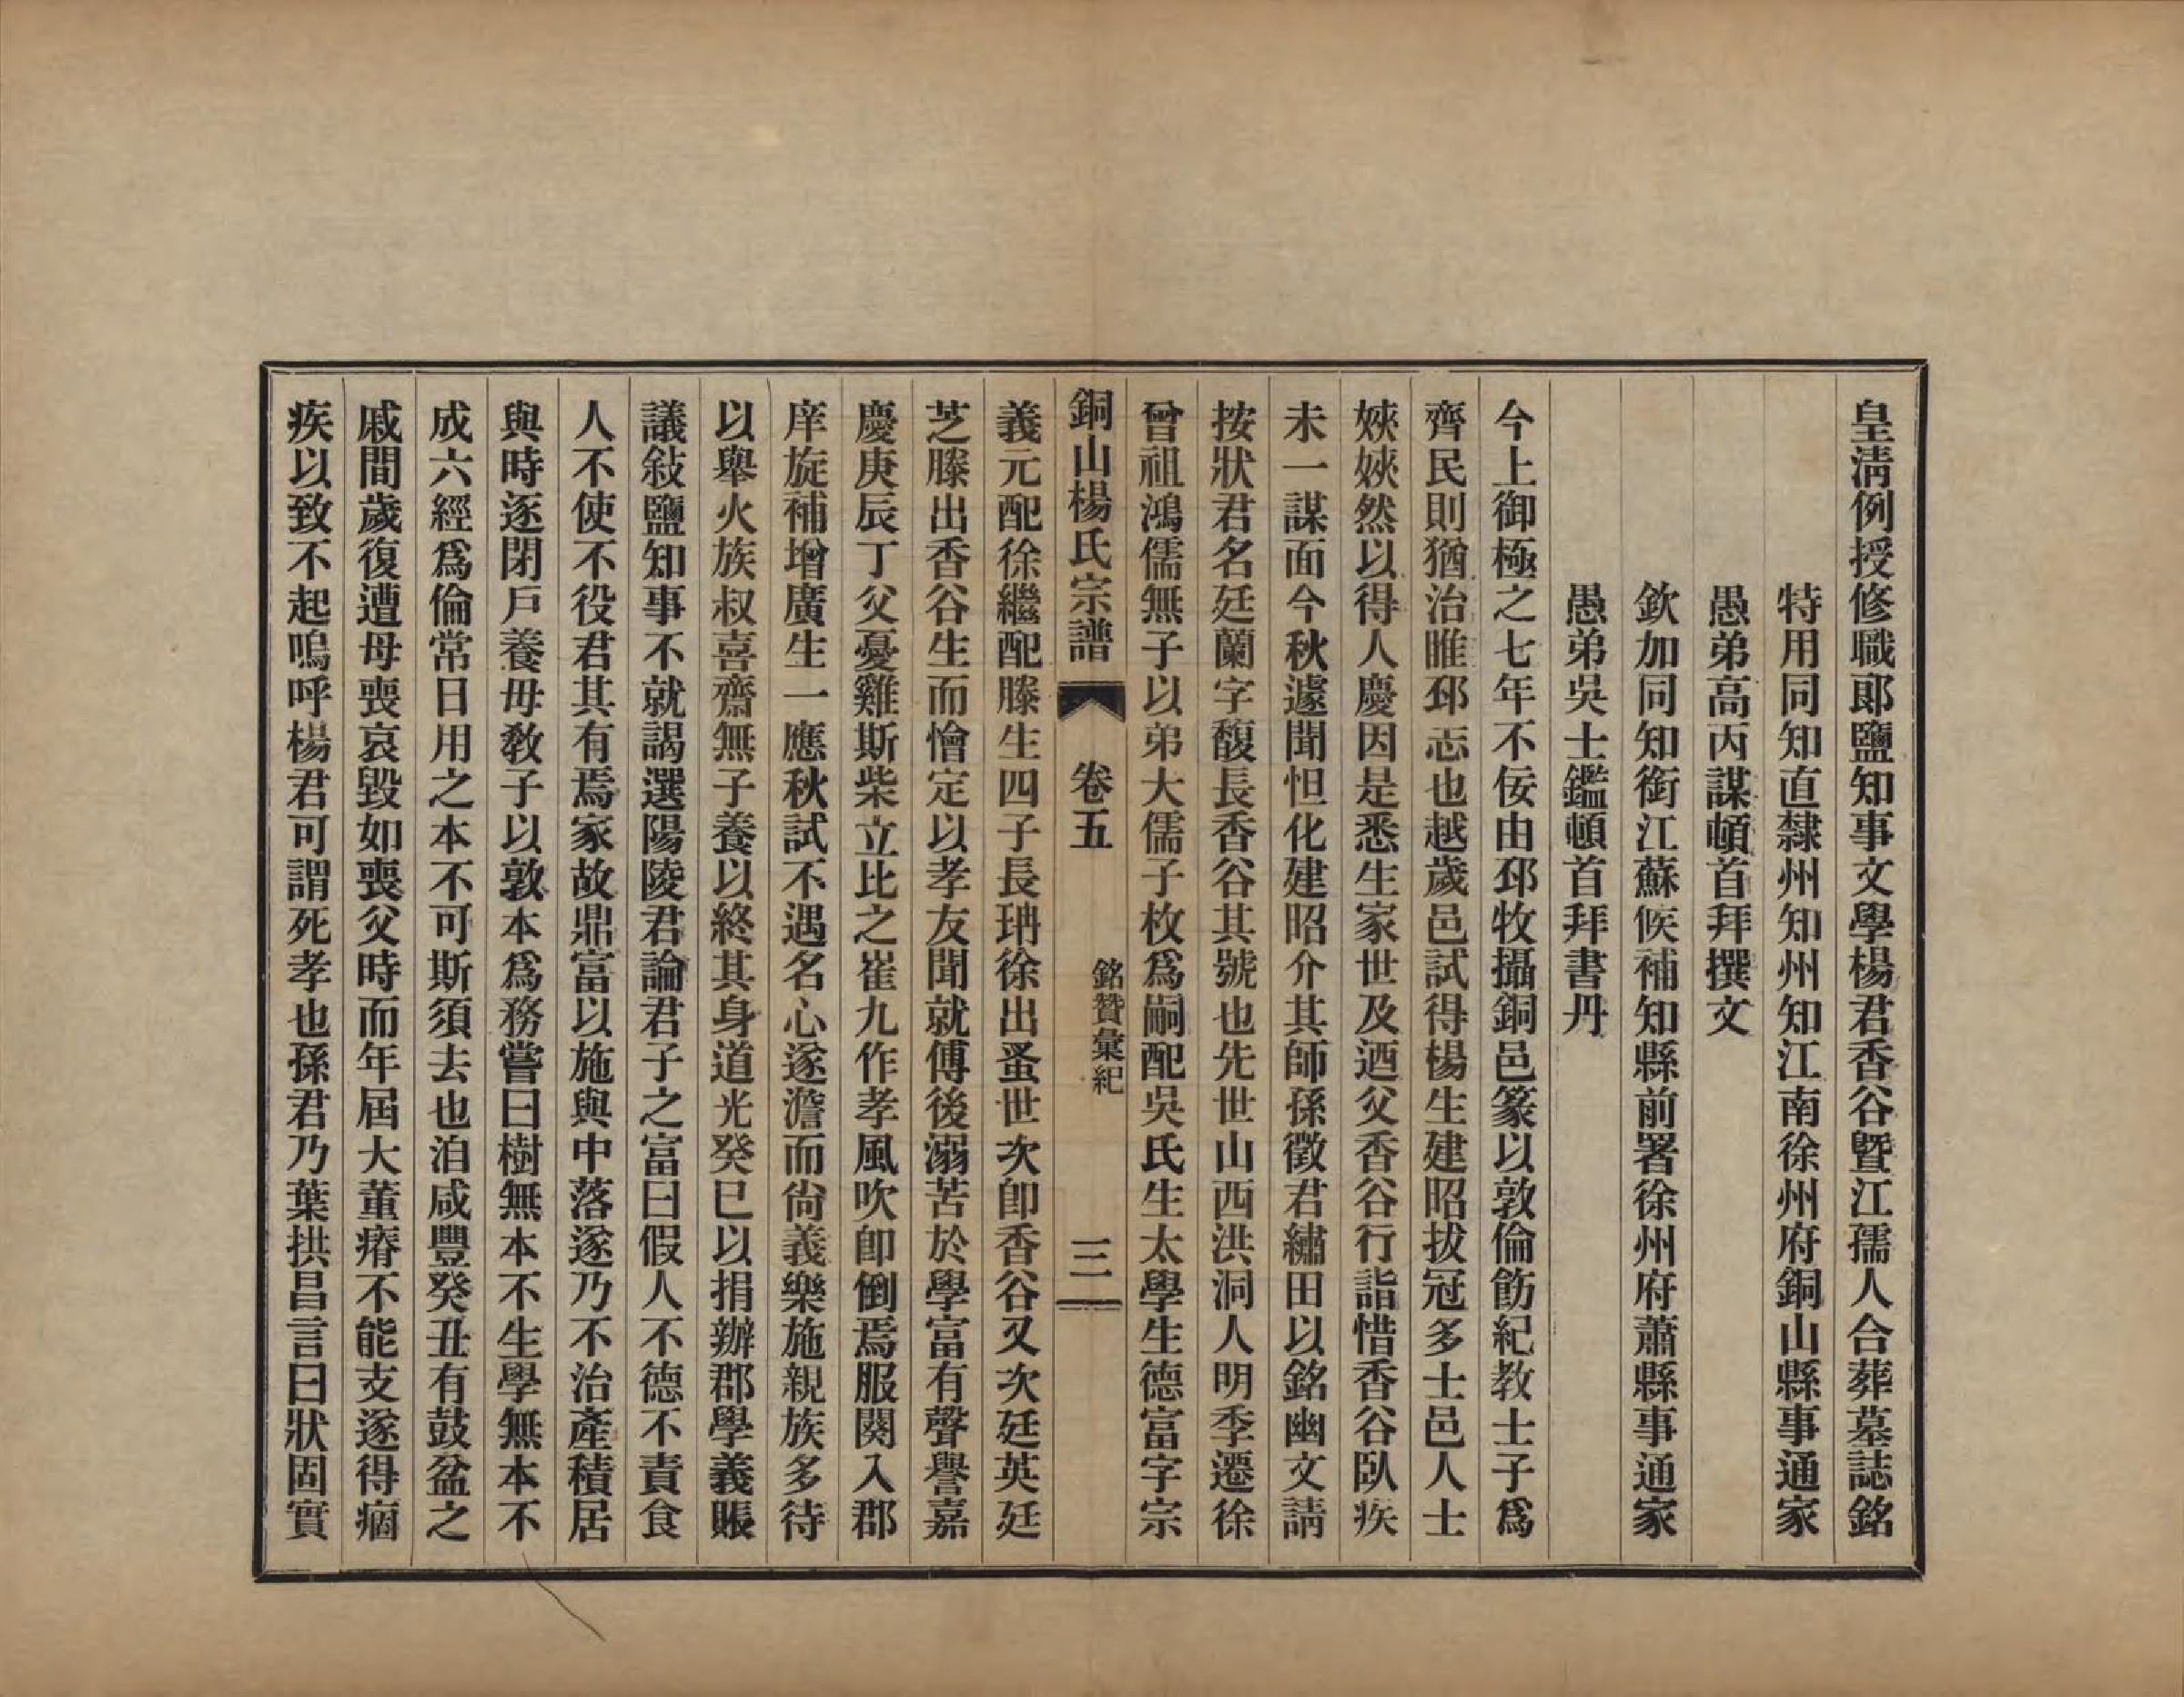 皇清例授修職郎鹽知事文學楊君香谷暨江孺人合葬墓誌銘
特用同知直隸州知州知江南徐州府銅山縣事通家
愚弟高丙謀頓首拜撰文
欽加同知銜江蘇候補知縣前署徐州府蕭縣事通家
愚弟吳士鑑頓首拜書丹
今上御極之七年不佞由邳牧攝銅邑篆以敦倫飭紀教士子爲
齊民則猶治睢邳志也越歲邑試得楊生建昭拔冠多士邑人士
㛍㛍然以得人慶因是悉生家世及迺父香谷行詣惜香谷臥疾
未一謀面今秋遽聞怛化建昭介其師孫徵君繡田以銘幽文請
按狀君名廷蘭字馥長香谷其號也先世山西洪洞人明季遷徐
曾祖鴻儒無子以弟大儒子枚爲嗣配吳氏生太學生德富字宗
銅山楊氏宗譜 卷五 銘贊彙紀 三
義元配徐繼配滕生四子長珃徐出蚤世次卽香谷又次廷英廷
芝滕出香谷生而憎定以孝友聞就傅後溺苦於學富有聲譽嘉
慶庚辰丁父憂雞斯柴立比之崔九作孝風吹卽倒焉服闋入郡
庠旋補增廣生一應秋試不遇名心遂澹而尙義樂施親族多待
以舉火族叔喜齋無子養以終其身道光癸巳以捐辦郡學義賬
議敍鹽知事不就謁選陽陵君論君子之富曰假人不德不責食
人不使不役君其有焉家故鼎富以施與中落遂乃不治產積居
與時逐閉戶養母教子以敦本爲務嘗曰樹無本不生學無本不
成六經爲倫常日用之本不可斯須去也洎咸豐癸丑有鼓盆之
戚間歲復遭母喪哀毀如喪父時而年屆大董瘠不能支遂得痼
疾以致不起嗚呼楊君可謂死孝也孫君乃葉拱昌言曰狀固實